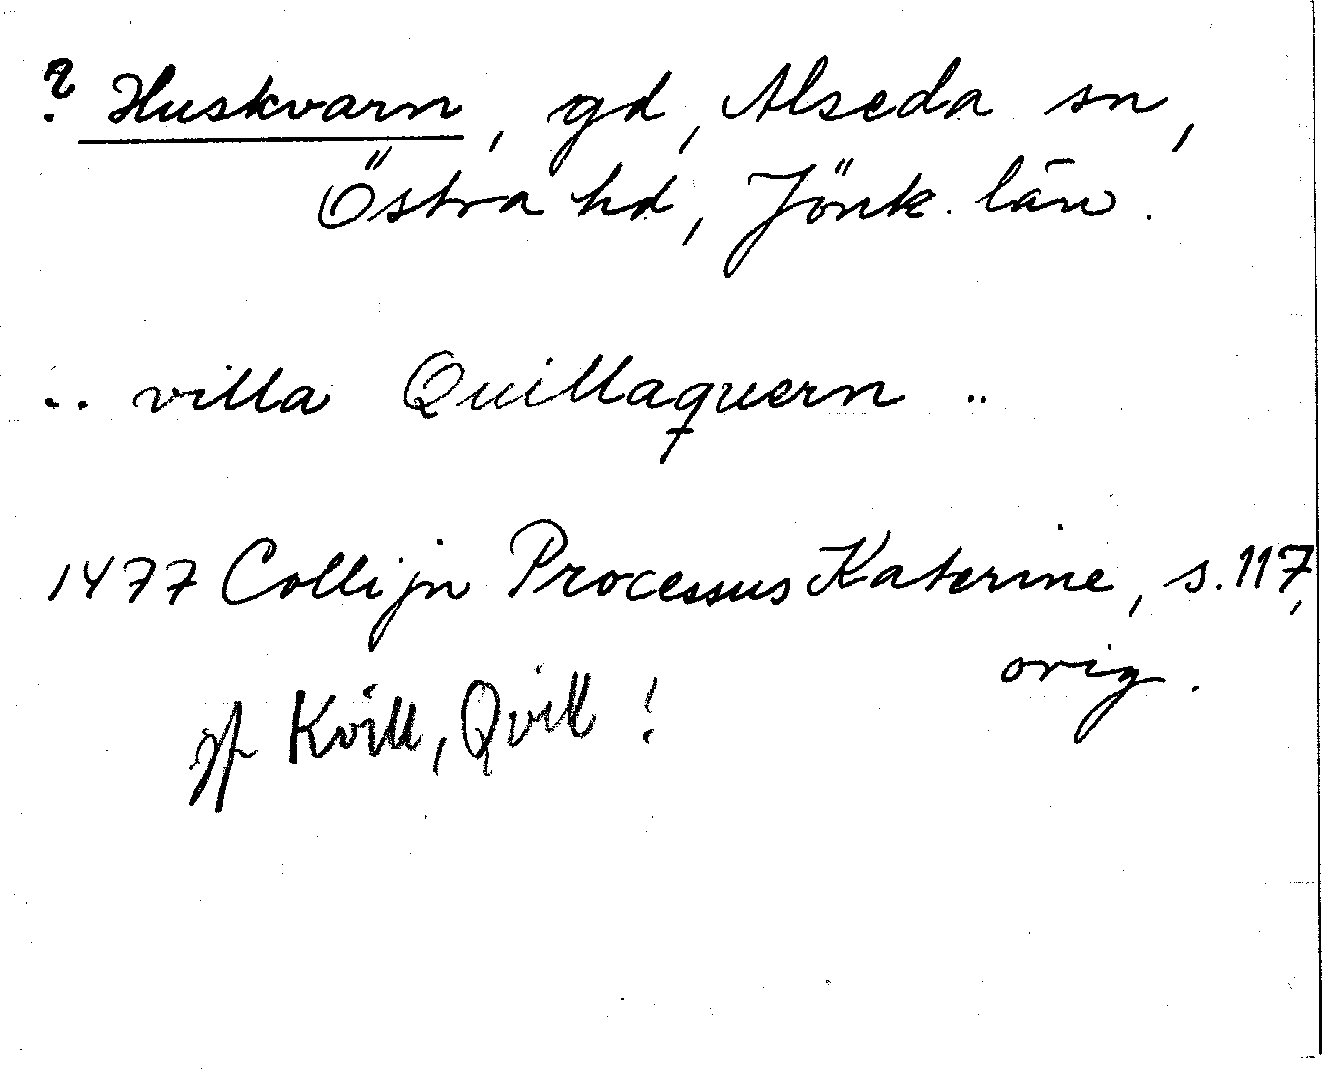 ? Huskvarn, gd, Alseda sn,
Östra hd, Jönk. län.
.. villa Quillaquern ..
1477 Collijn Processus Katerine, s. 117,
orig.
jf Kvill, Qvill!